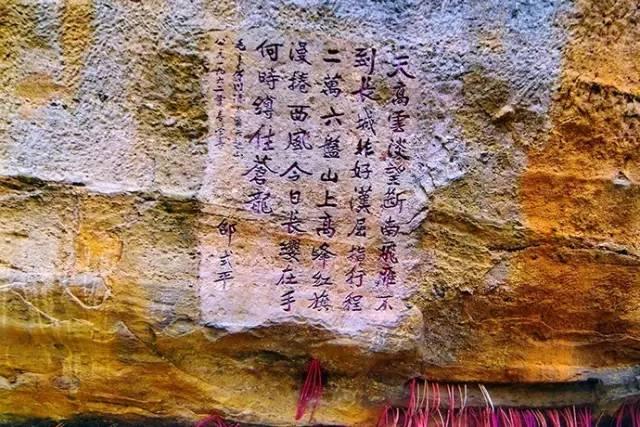 天高雲淡望断南飛雁不
到長城非好漢屈指行程
二萬六盤山上高峰紅旗
漫捲西風今日長纓在手
何時縛住蒼龍
毛主席
公元一九六二年
邵式平